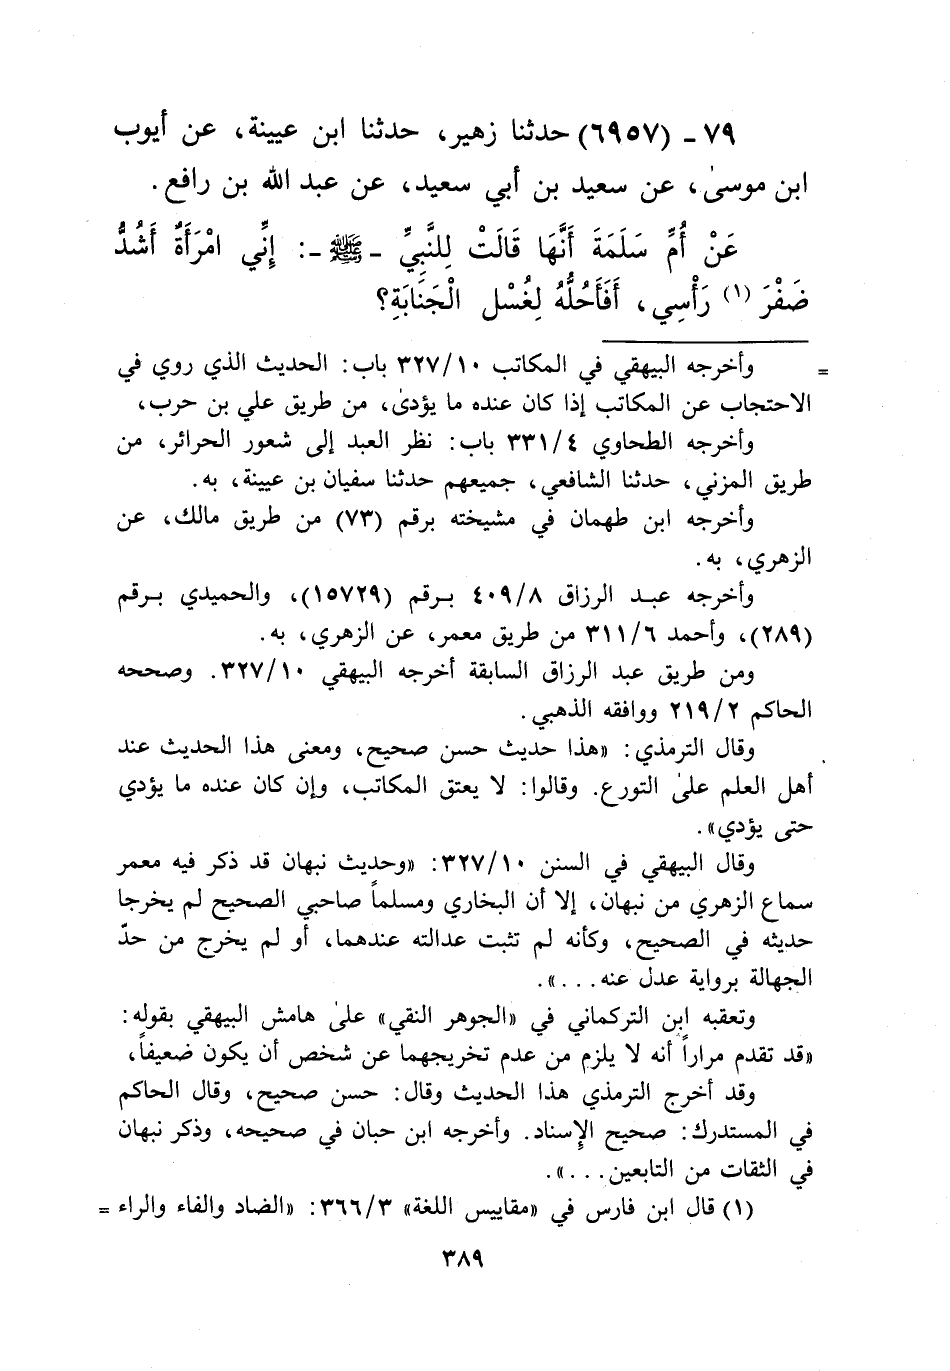 ٧٩ ـ (٦٩٥٧) حدثنا زهير، حدثنا ابن عيينة، عن أيوب
ابن موسىٰ، عن سعيد بن أبي سعيد، عن عبد الله بن رافع.
عَنْ أُمِّ سَلَمَةَ أَنَّهَا قَالَتْ لِلنَّبِيِّ ـ ﷺ ـ: إِنِّي امْرَأَةٌ أَشُدُّ
ضَفْرَ (١) رَأْسِي، أَفَأَحُلُّهُ لِغُسْلِ الْجَنَابَةِ؟
= وأخرجه البيهقي في المكاتب ٣٢٧/١٠ باب: الحديث الذي روي في
الاحتجاب عن المكاتب إذا كان عنده ما يؤدىٰ، من طريق علي بن حرب،
وأخرجه الطحاوي ٣٣١/٤ باب: نظر العبد إلى شعور الحرائر، من
طريق المزني، حدثنا الشافعي، جميعهم حدثنا سفيان بن عيينة، به.
وأخرجه ابن طهمان في مشيخته برقم (٧٣) من طريق مالك، عن
الزهري، به.
وأخرجه عبد الرزاق ٤٠٩/٨ برقم (١٥٧٢٩)، والحميدي برقم
(٢٨٩)، وأحمد ٣١١/٦ من طريق معمر، عن الزهري، به.
ومن طريق عبد الرزاق السابقة أخرجه البيهقي ٣٢٧/١٠. وصححه
الحاكم ٢١٩/٢ ووافقه الذهبي.
وقال الترمذي: «هذا حديث حسن صحيح، ومعنى هذا الحديث عند
أهل العلم علىٰ التورع. وقالوا: لا يعتق المكاتب، وإن كان عنده ما يؤدي
حتى يؤدي».
وقال البيهقي في السنن ٣٢٧/١٠: «وحديث نبهان قد ذكر فيه معمر
سماع الزهري من نبهان، إلا أن البخاري ومسلماً صاحبي الصحيح لم يخرجا
حديثه في الصحيح، وكأنه لم تثبت عدالته عندهما، أو لم يخرج من حدّ
الجهالة برواية عدل عنه...».
وتعقبه ابن التركماني في «الجوهر النقي» علىٰ هامش البيهقي بقوله:
«قد تقدم مراراً أنه لا يلزم من عدم تخريجهما عن شخص أن يكون ضعيفاً،
وقد أخرج الترمذي هذا الحديث وقال: حسن صحيح، وقال الحاكم
في المستدرك: صحيح الإسناد. وأخرجه ابن حبان في صحيحه، وذكر نبهان
في الثقات من التابعين...».
(١) قال ابن فارس في «مقاييس اللغة» ٣٦٦/٣: «الضاد والفاء والراء =
٣٨٩